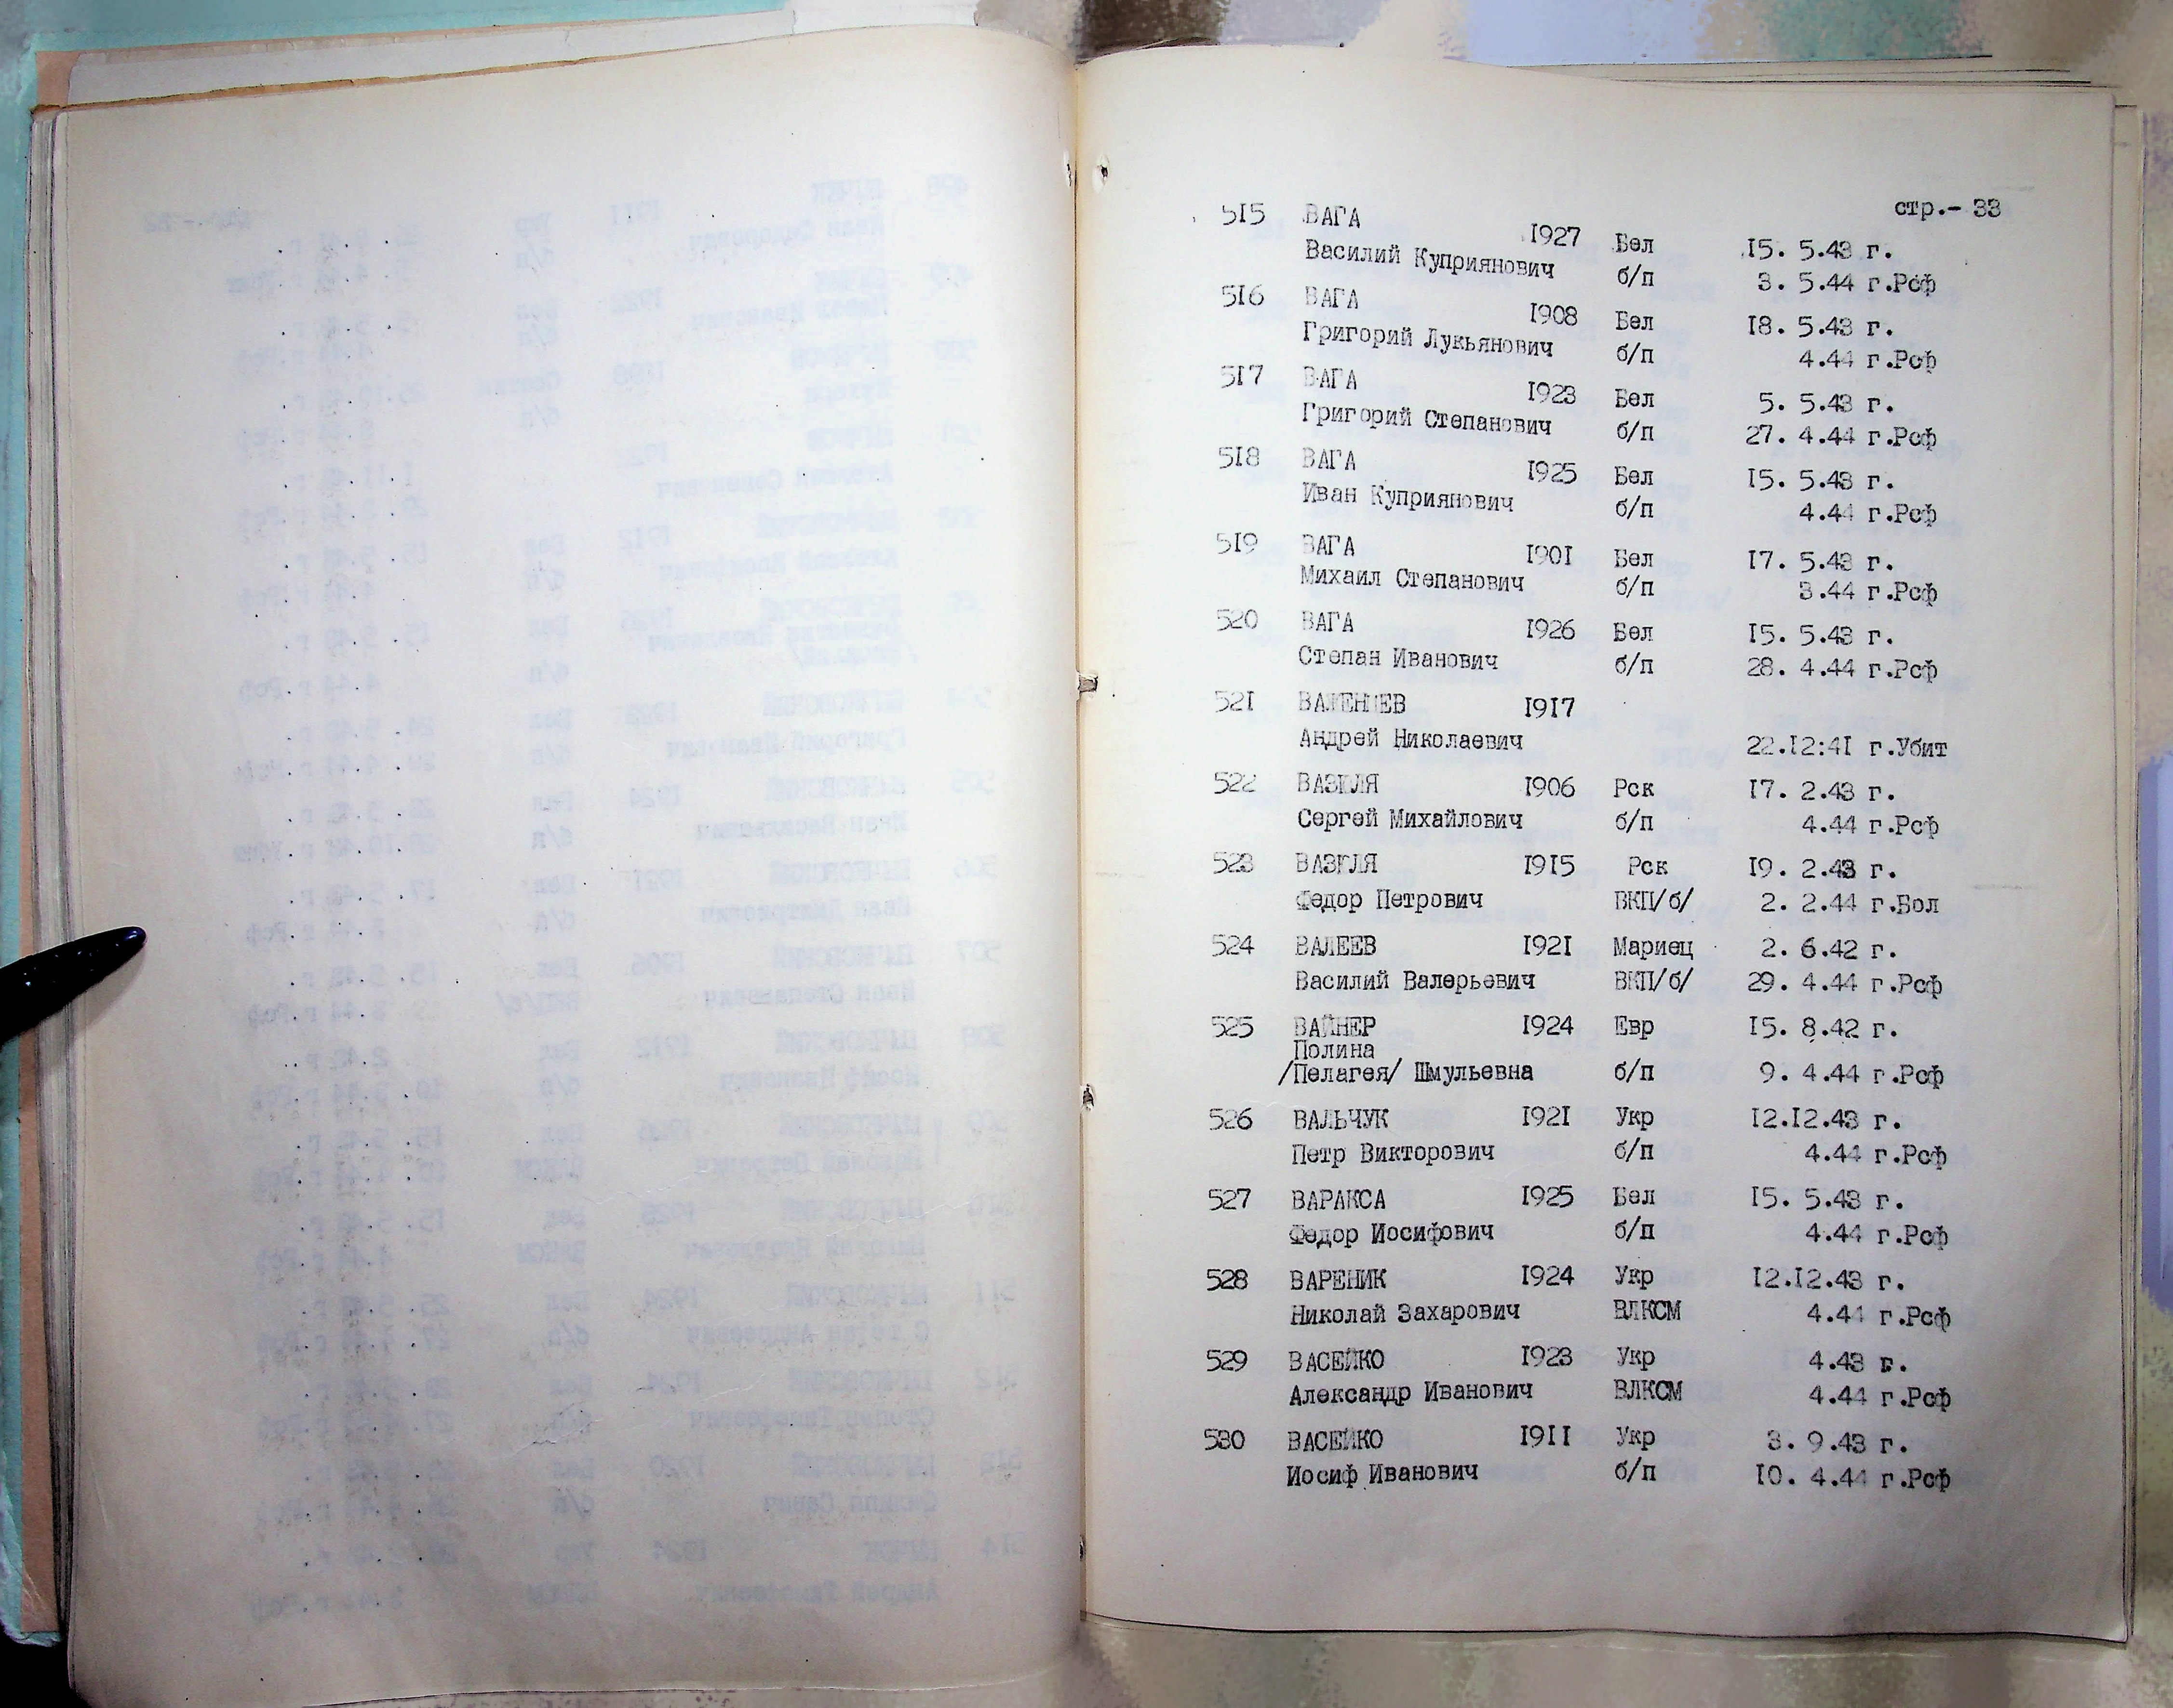 стр.- 33
515 ВАГА 1927 Бел 15. 5.43 г.
Василий Куприянович б/п 3. 5.44 г.Рсф
516 ВАГА 1908 Бел 18. 5.43 г.
Григорий Лукьянович б/п 4.44 г.Рсф
517 ВАГА 1923 Бел 5. 5.43 г.
Григорий Степанович б/п 27. 4.44 г.Рсф
518 ВАГА 1925 Бел 15. 5.43 г.
Иван Куприянович б/п 4.44 г.Рсф
519 ВАГА 1901 Бел 17. 5.43 г.
Михаил Степанович б/п 3.44 г.Рсф
520 ВАГА 1926 Бел 15. 5.43 г.
Степан Иванович б/п 28. 4.44 г.Рсф
521 1917
Андрей Николаевич 22.12:41 г.Убит
522 1906 Рск 17. 2.43 г.
Сергей Михайлович б/п 4.44 г.Рсф
523 1915 Рск 19. 2.43 г.
Федор Петрович ВКП/б/ 2. 2.44 г.Бол
524 ВАЛЕЕВ 1921 Мариец 2. 6.42 г.
Василий Валерьевич ВКП/б/ 29. 4.44 г.Рсф
525 ВАЙНЕР 1924 Евр 15. 8.42 г.
Полина
/Пелагея/ Шмульевна б/п 9. 4.44 г.Рсф
526 ВАЛЬЧУК 1921 Укр 12.12.43 г.
Петр Викторович б/п 4.44 г.Рсф
527 ВАРАКСА 1925 Бел 15. 5.43 г.
Федор Иосифович б/п 4.44 г.Рсф
528 ВАРЕНИК 1924 Укр 12.12.43 г.
Николай Захарович ВЛКСМ 4.44 г.Рсф
529 ВАСЕЙКО 1923 Укр 4.43 г.
Александр Иванович ВЛКСМ 4.44 г.Рсф
530 ВАСЕЙКО 1911 Укр 3. 9.43 г.
Иосиф Иванович б/п 10. 4.44 г.Рсф